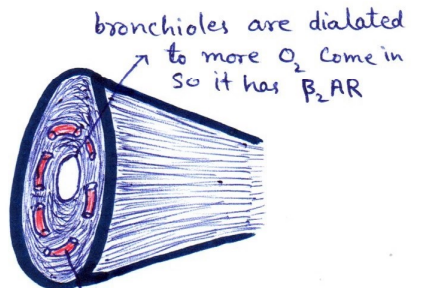 bronchioles are dialated
to more O₂ Come in
So it has β₂AR